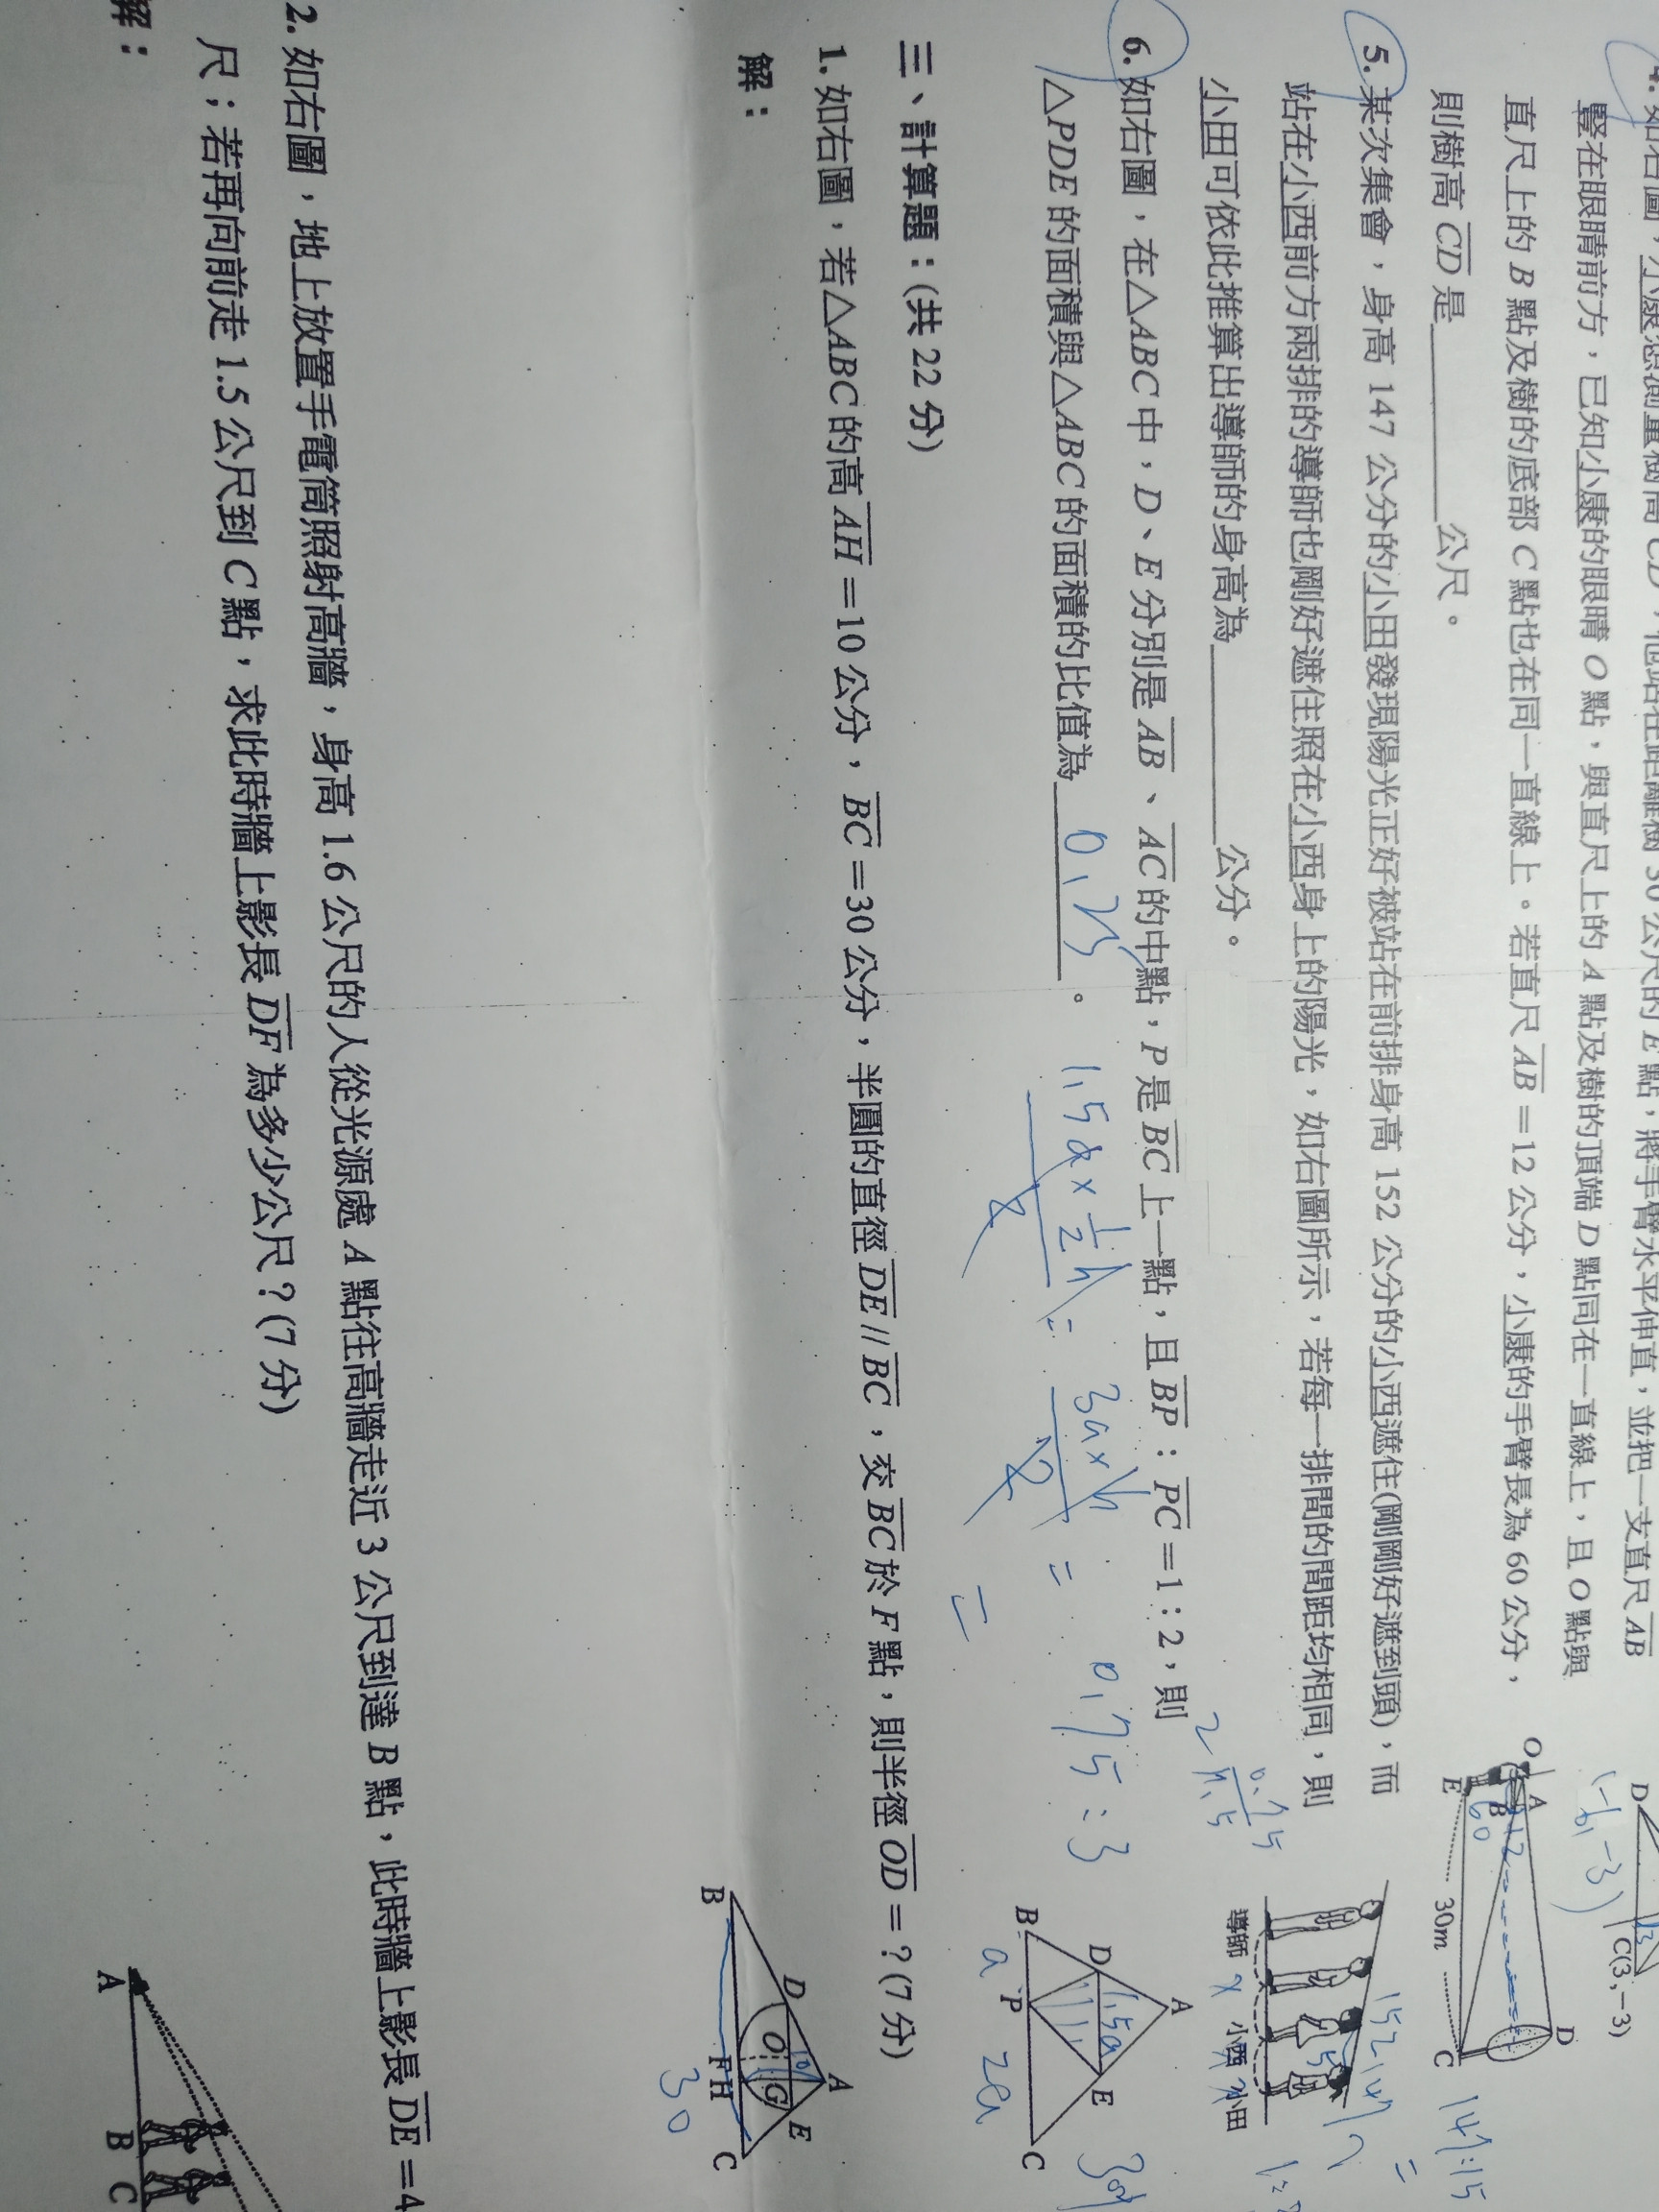 4. 如右圖，小康想測量樹高 CD，他站在距離樹 30 公尺的 E 點，將手臂水平伸直，並把一支直尺 AB
豎在眼睛前方，已知小康的眼睛 O 點，與直尺上的 A 點及樹的頂端 D 點同在一直線上，且 O 點與
直尺上的 B 點及樹的底部 C 點也在同一直線上。若直尺 AB=12 公分，小康的手臂長為 60 公分，
則樹高 CD 是________公尺。
D
C(3,−3)
(-6,-3)
O
A
B
E
12
60
30m
D
C
5. 某次集會，身高 147 公分的小田發現陽光正好被站在前排身高 152 公分的小西遮住(剛剛好遮到頭)，而
站在小西前方兩排的導師也剛好遮住照在小西身上的陽光，如右圖所示，若每一排間的間距均相同，則
小田可依此推算出導師的身高為________公分。
導師
小西
小田
x
6. 如右圖，在△ABC 中，D、E 分別是 AB、AC 的中點，P 是 BC 上一點，且 BP：PC=1：2，則
△PDE 的面積與△ABC 的面積的比值為 0.25 。
1.5a × 1/2 h
2
= 3a×h
2
= 0.75 : 3
=
A
D
1.5a
E
B
P
C
a
2a
三、計算題：(共 22 分)
1. 如右圖，若△ABC 的高 AH=10 公分，BC=30 公分，半圓的直徑 DE // BC，交 BC 於 F 點，則半徑 OD=？(7 分)
解：
A
D
O
G
E
B
F
H
C
30
2. 如右圖，地上放置手電筒照射高牆，身高 1.6 公尺的人從光源處 A 點往高牆走近 3 公尺到達 B 點，此時牆上影長 DE=4
尺；若再向前走 1.5 公尺到 C 點，求此時牆上影長 DF 為多少公尺？(7 分)
解：
A
B
C